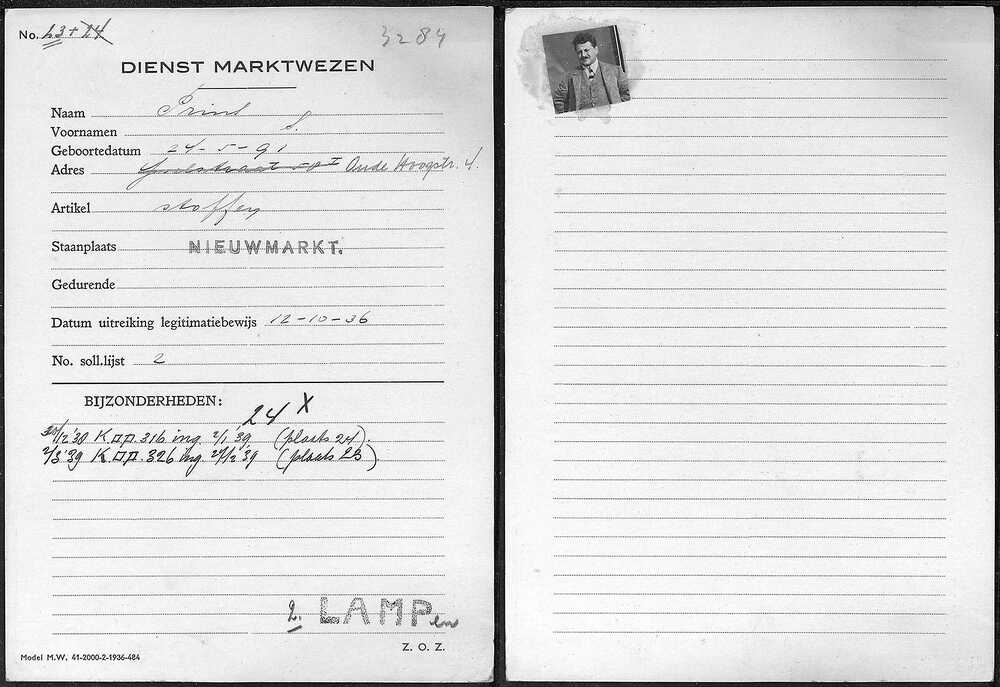 No. 23 + 24
3284
DIENST MARKTWEZEN
Naam Prins
Voornamen S.
Geboortedatum 24-5-91
Adres Oude Hoogstr. 4.
Artikel stoffen
Staanplaats NIEUWMARKT.
Gedurende
Datum uitreiking legitimatiebewijs 12-10-36
No. soll.lijst 2
BIJZONDERHEDEN:
24 X
12'38 K. 316 ing. 2/1 '39 (plaats 24).
2/3 '39 K. 326 ing. 27/2 '39 (plaats 23).
2. LAMPen
Z. O. Z.
Model M.W. 41-2000-2-1936-484